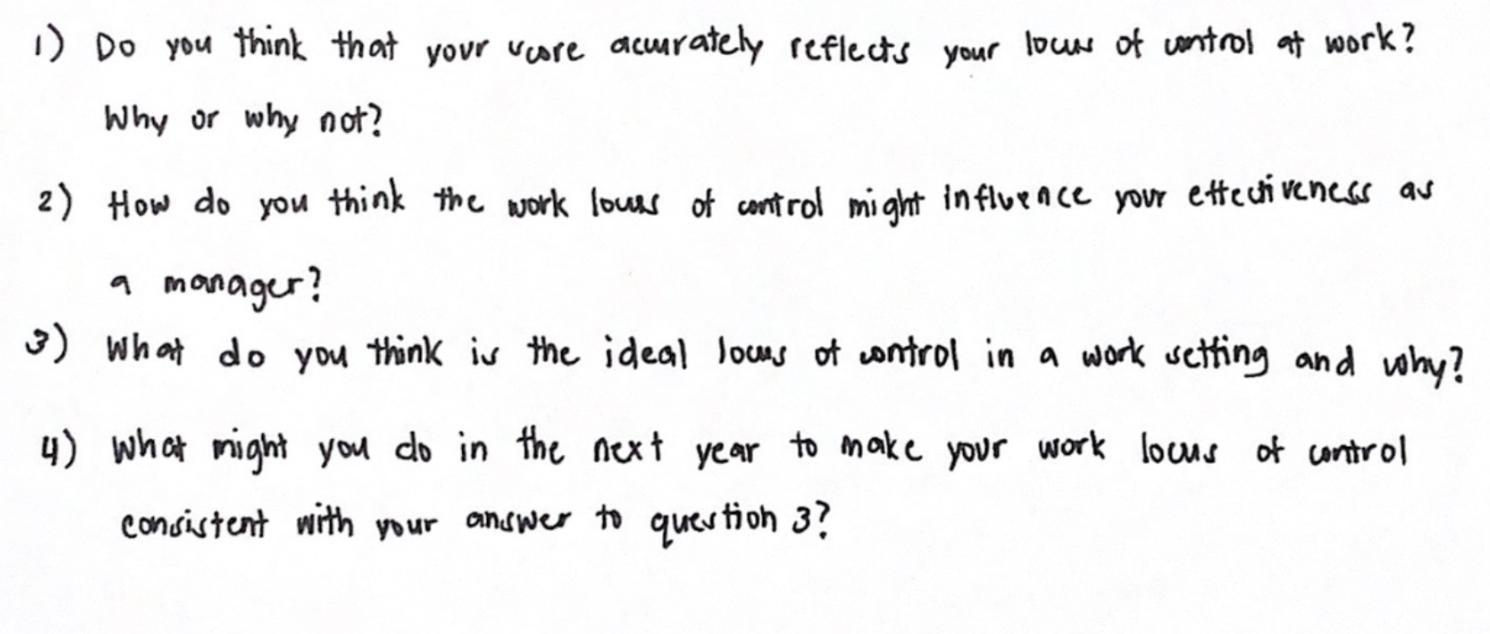 1) Do you think that your score accurately reflects your locus of control at work?
Why or why not?
2) How do you think the work locus of control might influence your effectiveness as
a manager?
3) What do you think is the ideal locus of control in a work setting and why?
4) What might you do in the next year to make your work locus of control
consistent with your answer to question 3?